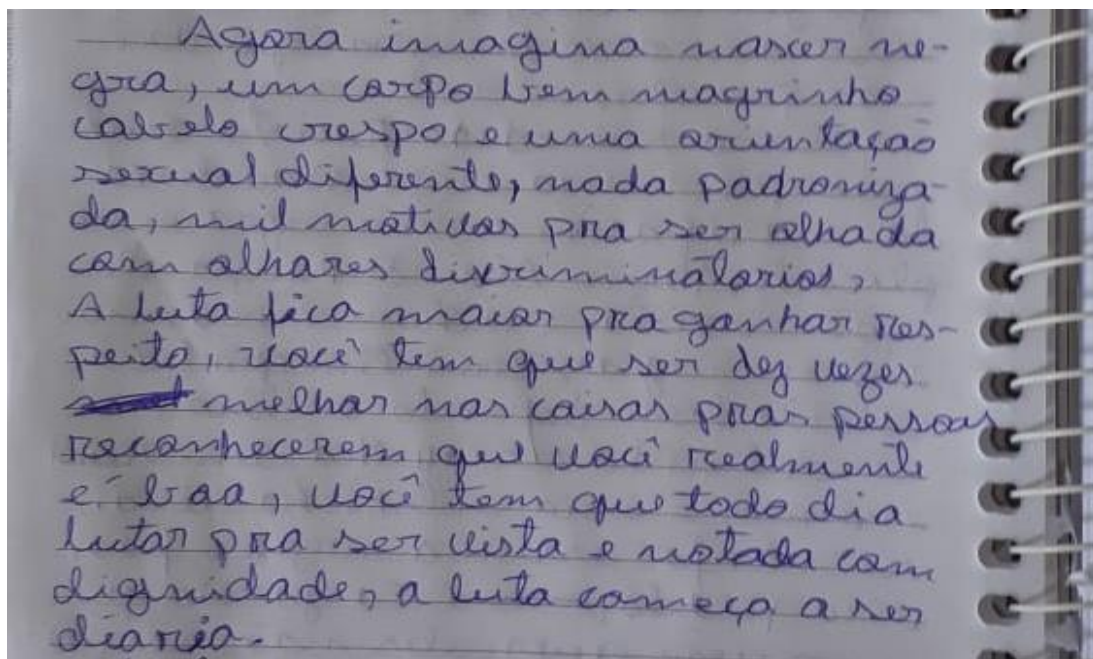 Agora imagina nascer ne-
gra, um corpo bem magrinho
cabelo crespo e uma orientação
sexual diferente, nada padroniza-
da, mil motivos pra ser olhada
com olhares discriminatorios,
A luta fica maior pra ganhar res-
peito, você tem que ser dez vezes
melhor nas coisas pras pessoas
reconhecerem que você realmente
é boa, você tem que todo dia
lutar pra ser vista e notada com
dignidade, a luta começa a ser
diaria.